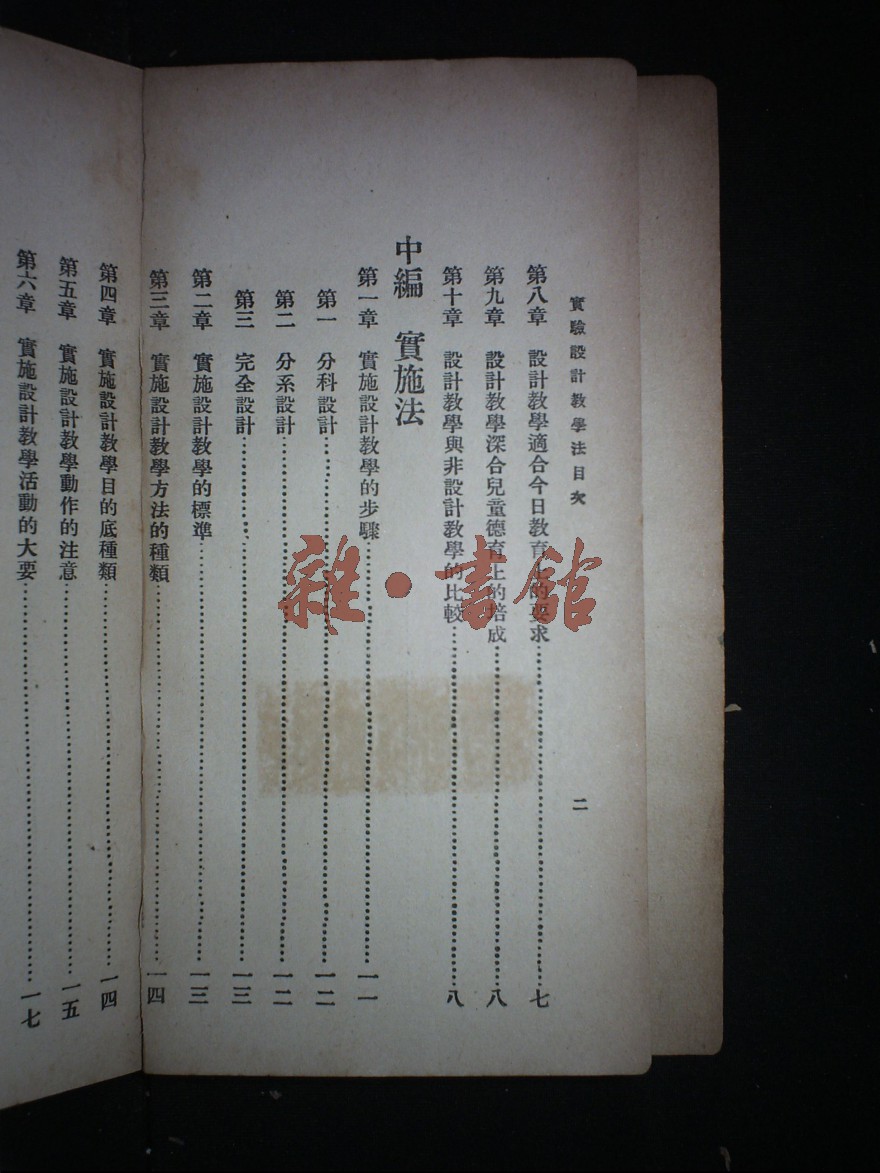 實驗設計教學法目次
二
第八章 設計教學適合今日教育上的要求………七
第九章 設計教學深合兒童德育上的培成………八
第十章 設計教學與非設計教學的比較………八
中編 實施法
第一章 實施設計教學的步驟………一一
第一 分科設計………一二
第二 分系設計………一二
第三 完全設計………一三
第二章 實施設計教學的標準………一三
第三章 實施設計教學方法的種類………一四
第四章 實施設計教學目的底種類………一四
第五章 實施設計教學動作的注意………一五
第六章 實施設計教學活動的大要………一七
雜·書館